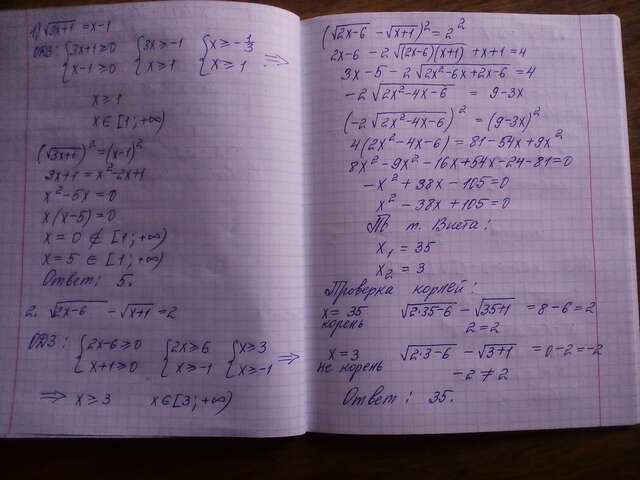 1) √3x+1 = x-1
ОДЗ: {3x+1≥0 {3x≥-1 {x≥-1/3
{x-1≥0 {x≥1 {x≥1 ⇒
x≥1
x∈[1;+∞)
(√3x+1)² = (x-1)²
3x+1 = x²-2x+1
x²-5x=0
x(x-5)=0
x=0 ∉ [1;+∞)
x=5 ∈ [1;+∞)
Ответ: 5.
2. √2x-6 - √x+1 = 2
ОДЗ: {2x-6≥0 {2x≥6 {x≥3
{x+1≥0 {x≥-1 {x≥-1 ⇒
⇒ x≥3 x∈[3;+∞)
(√2x-6 - √x+1)² = 2²
2x-6 - 2√(2x-6)(x+1) + x+1 = 4
3x-5-2√2x²-6x+2x-6 = 4
-2√2x²-4x-6 = 9-3x
(-2√2x²-4x-6)² = (9-3x)²
4(2x²-4x-6) = 81-54x+9x²
8x²-9x²-16x+54x-24-81=0
-x²+38x-105=0
x²-38x+105=0
По т. Виета:
x₁ = 35
x₂ = 3
Проверка корней:
x=35 √2·35-6 - √35+1 = 8-6=2
корень 2=2
x=3 √2·3-6 - √3+1 = 0-2=-2
не корень -2≠2
Ответ: 35.